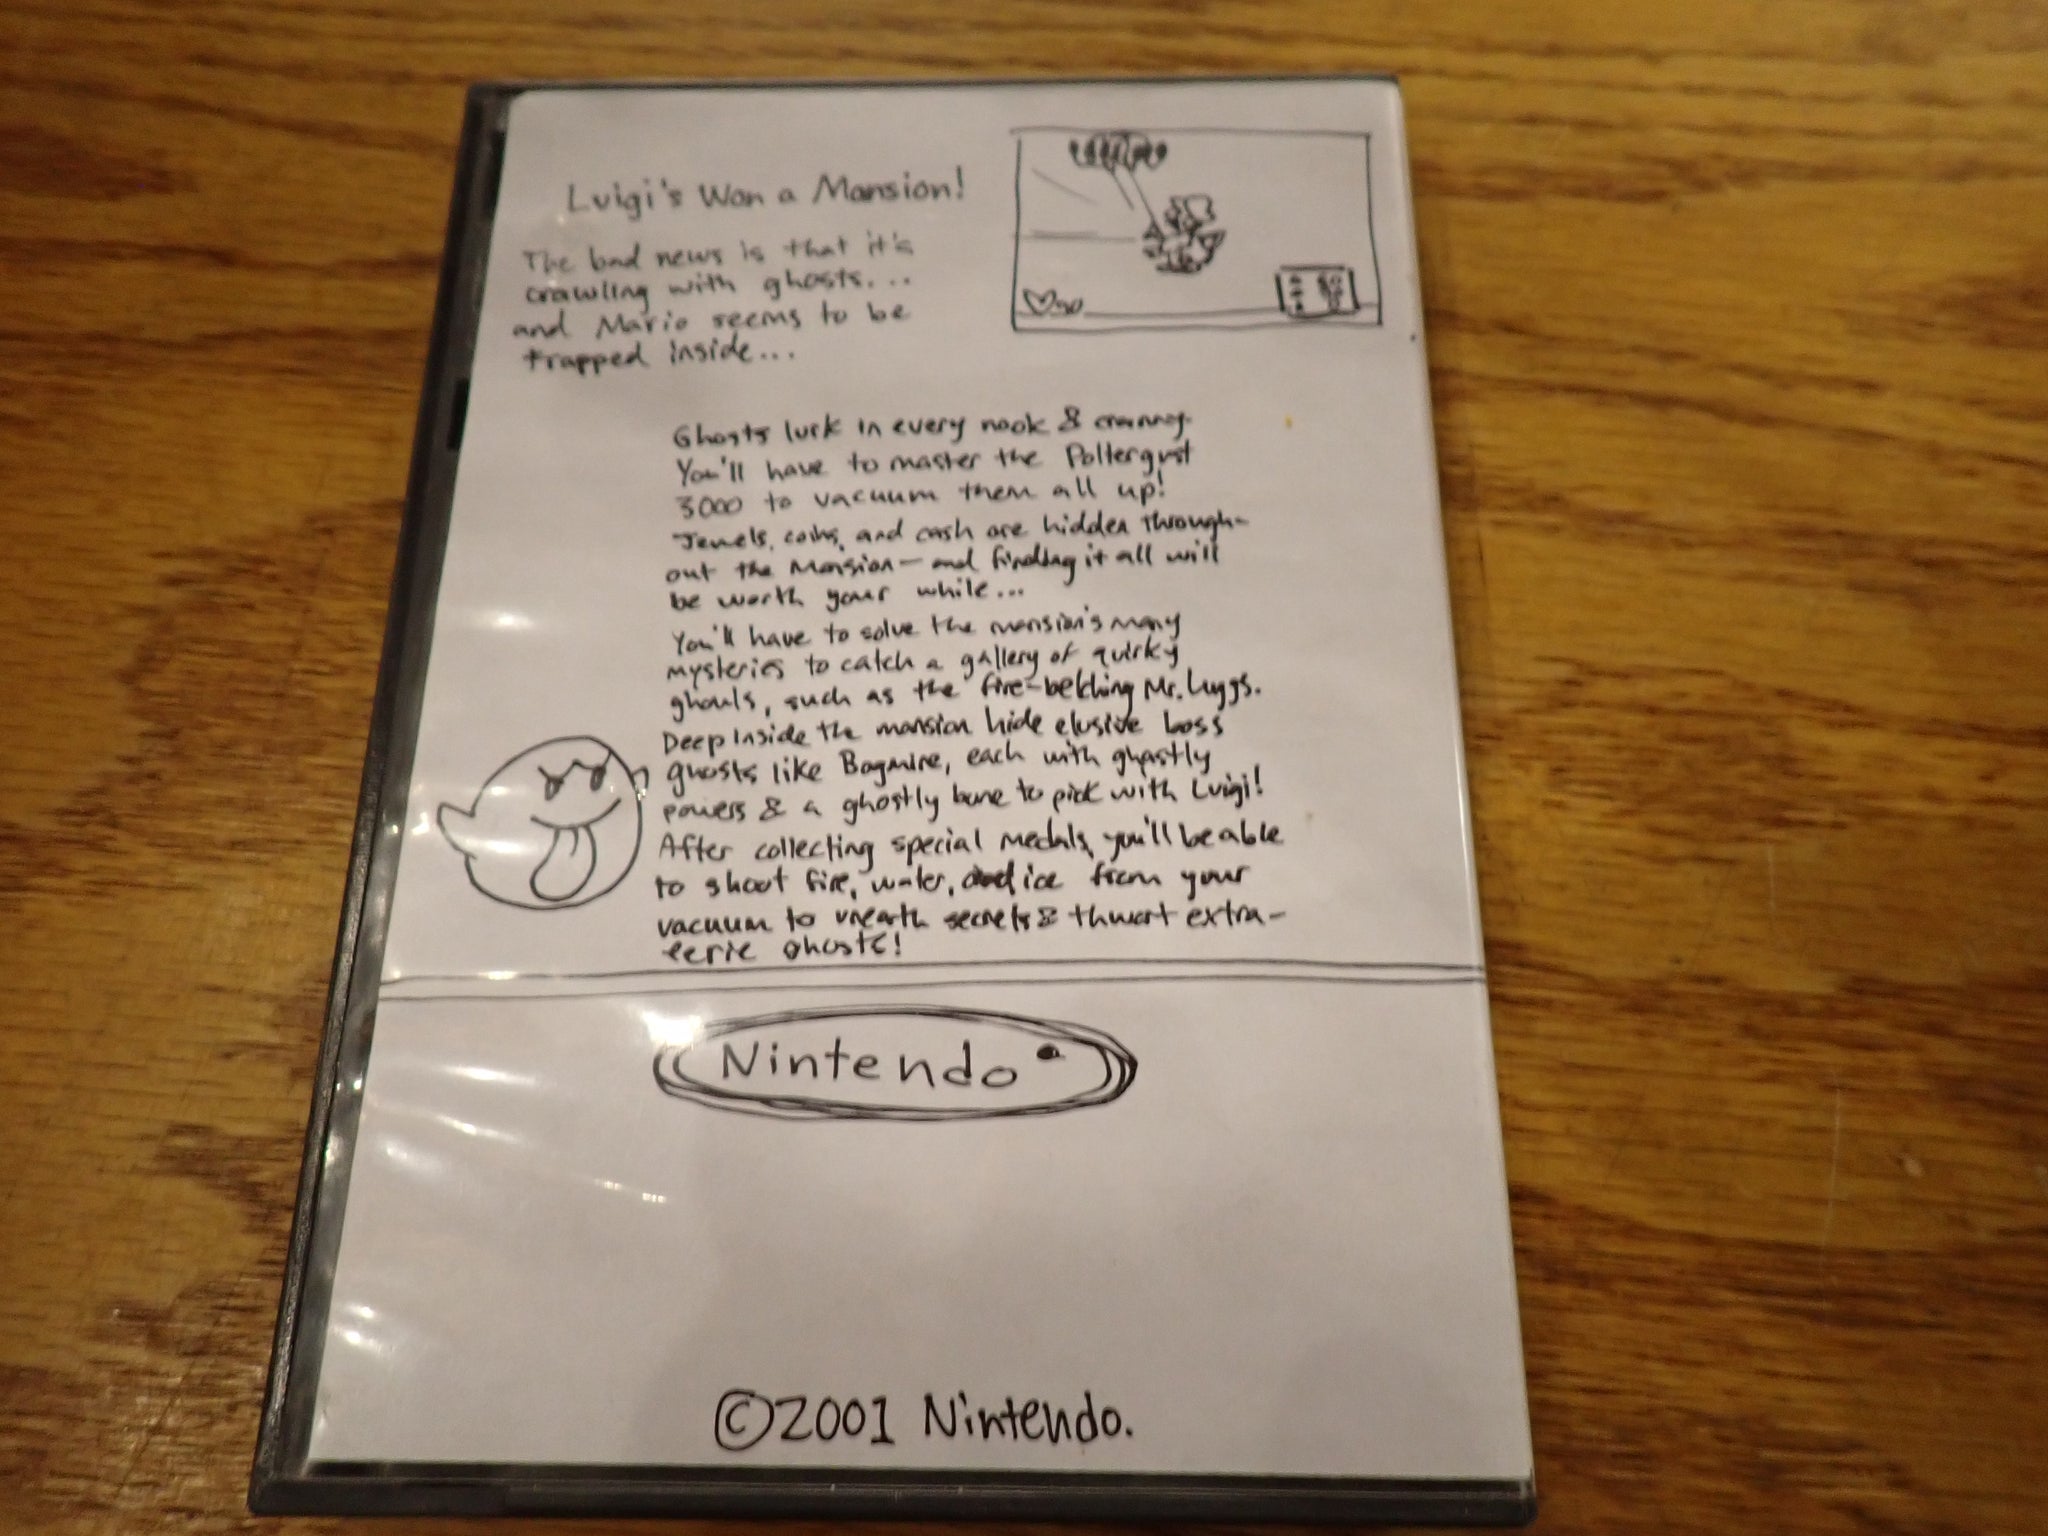 Luigi's Won a Mansion!
The bad news is that it's
crawling with ghosts...
and Mario seems to be
trapped inside...
Ghosts lurk in every nook & cranny.
You'll have to master the Poltergust
3000 to vacuum them all up!
Jewels, coins, and cash are hidden through-
out the Mansion—and finding it all will
be worth your while...
You'll have to solve the mansion's many
mysteries to catch a gallery of quirky
ghouls, such as the fire-belching Mr. Luggs.
Deep inside the mansion hide elusive boss
ghosts like Bogmire, each with ghastly
powers & a ghostly bone to pick with Luigi!
After collecting special medals, you'll be able
to shoot fire, water, and ice from your
vacuum to unearth secrets & thwart extra-
eerie ghosts!
Nintendo
©2001 Nintendo.